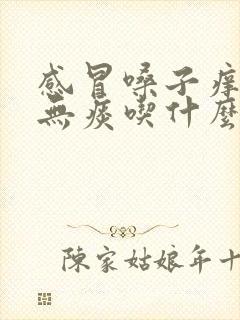 感冒嗓子痒
無痰喫什麼
陳家姑娘年十